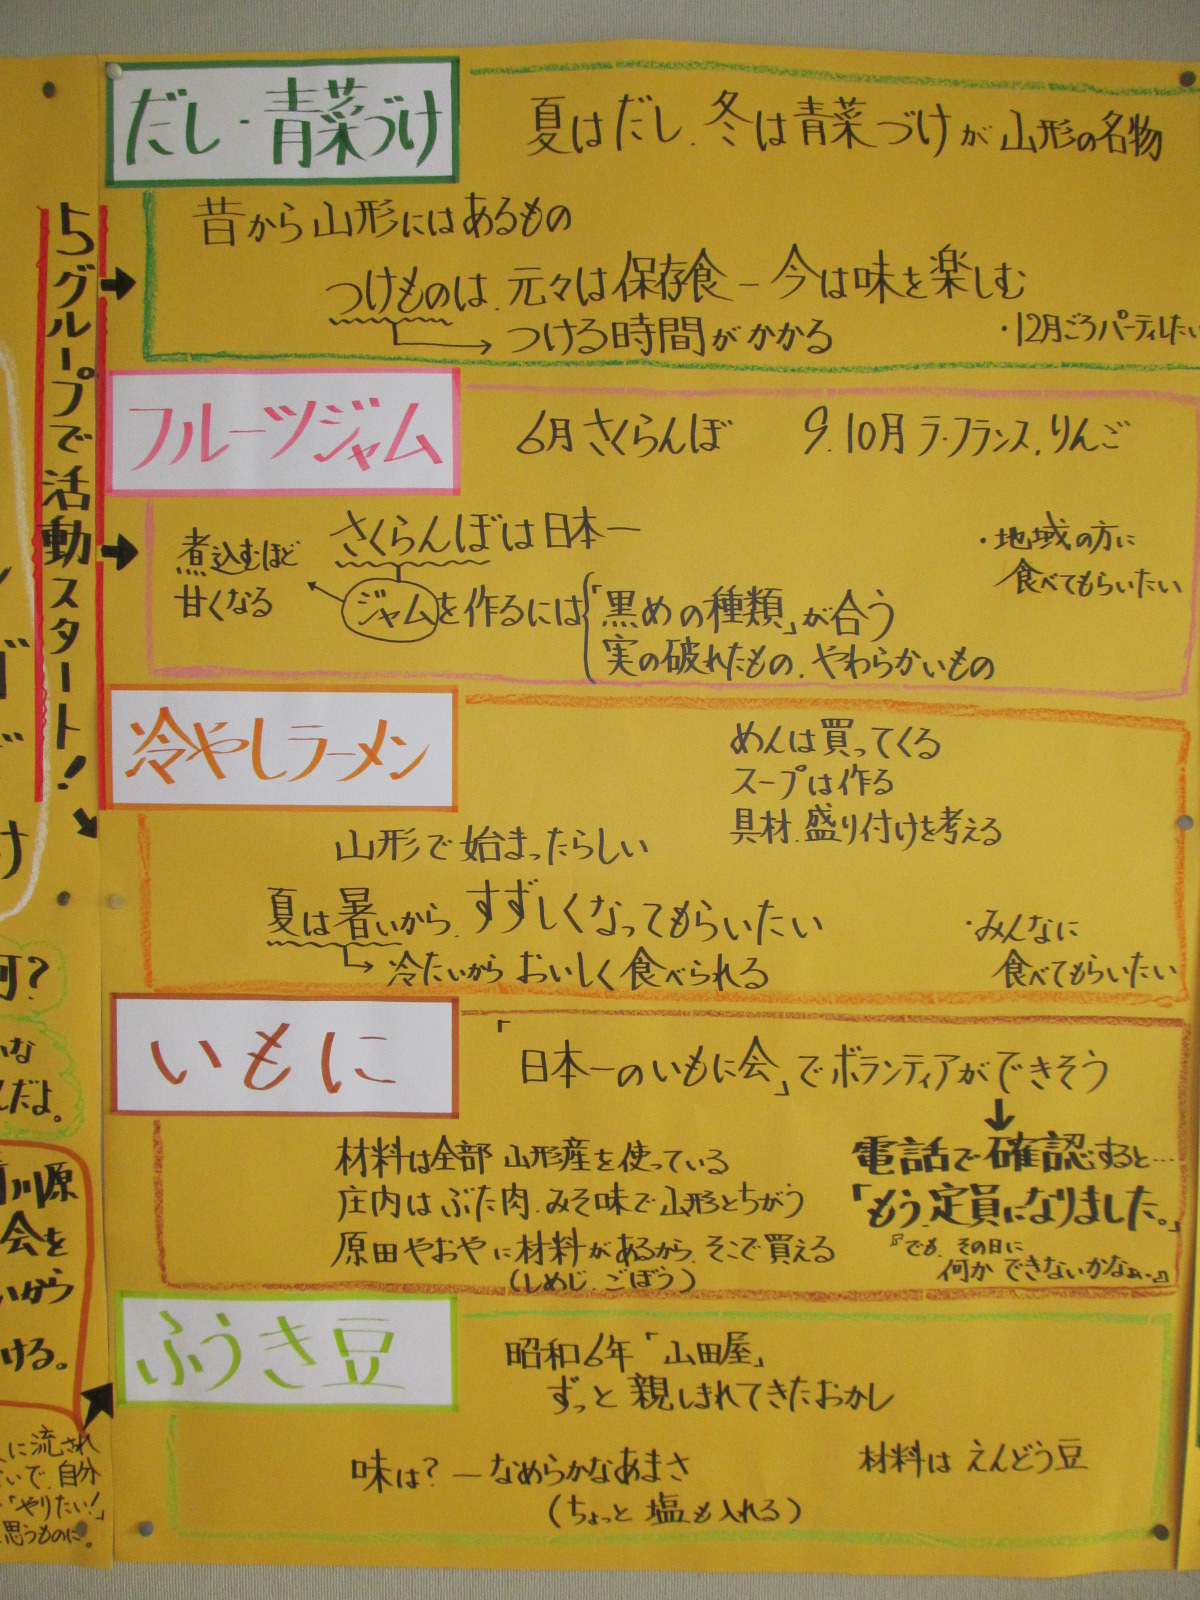 5グループで活動スタート!
だし・青菜づけ
夏はだし、冬は青菜づけが山形の名物
昔から山形にはあるもの
つけものは、元々は保存食－今は味を楽しむ
つける時間がかかる
・12月ごろパーティしたい
フルーツジャム
6月さくらんぼ 9、10月ラ・フランス、りんご
さくらんぼは日本一
煮込むほど
甘くなる
ジャムを作るには「黒めの種類」が合う
実の破れたもの、やわらかいもの
・地域の方に
食べてもらいたい
冷やしラーメン
めんは買ってくる
スープは作る
具材、盛り付けを考える
山形で始まったらしい
夏は暑いから、すずしくなってもらいたい
冷たいからおいしく食べられる
・みんなに
食べてもらいたい
いもに
「日本一のいもに会」でボランティアができそう
電話で確認すると…
「もう、定員になりました。」
『でも、その日に
何かできないかなぁ…』
材料は全部 山形産を使っている
庄内はぶた肉、みそ味で山形とちがう
原田やおやに材料があるから、そこで買える
(しめじ、ごぼう)
ふうき豆
昭和6年「山田屋」
ずっと親しまれてきたおかし
味は?－なめらかなあまさ
(ちょっと塩も入れる)
材料は えんどう豆
何?
だよ。
川原
会を
いから
ける。
に流され
いで、自分
「やりたい!」
思うものに。